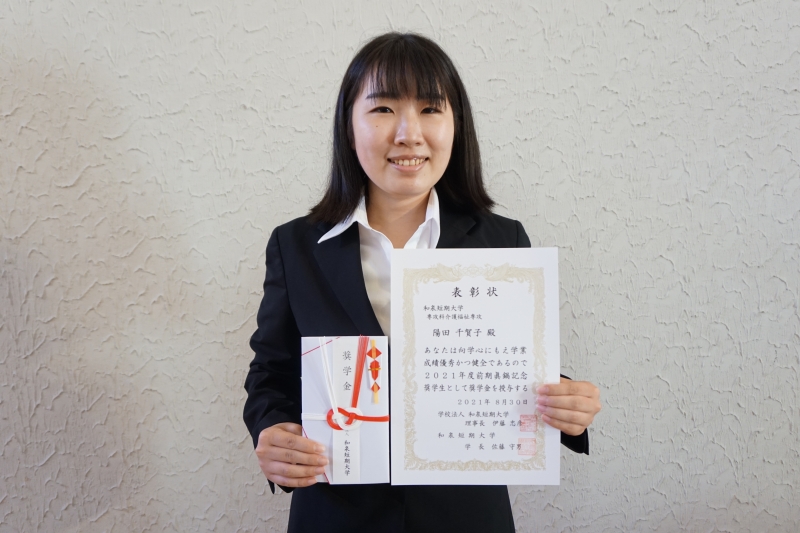 表彰状
和泉短期大学
専攻科介護福祉専攻
陽田 千賀子 殿
あなたは向学心にもえ学業
成績優秀かつ健全であるので
2021年度前期眞鍋記念
奨学生として奨学金を授与する
2021年 8月30日
学校法人 和泉短期大学
理事長 伊藤 忠彦
和泉短期大学
学長 佐藤 守男
奨学金
和泉短期大学